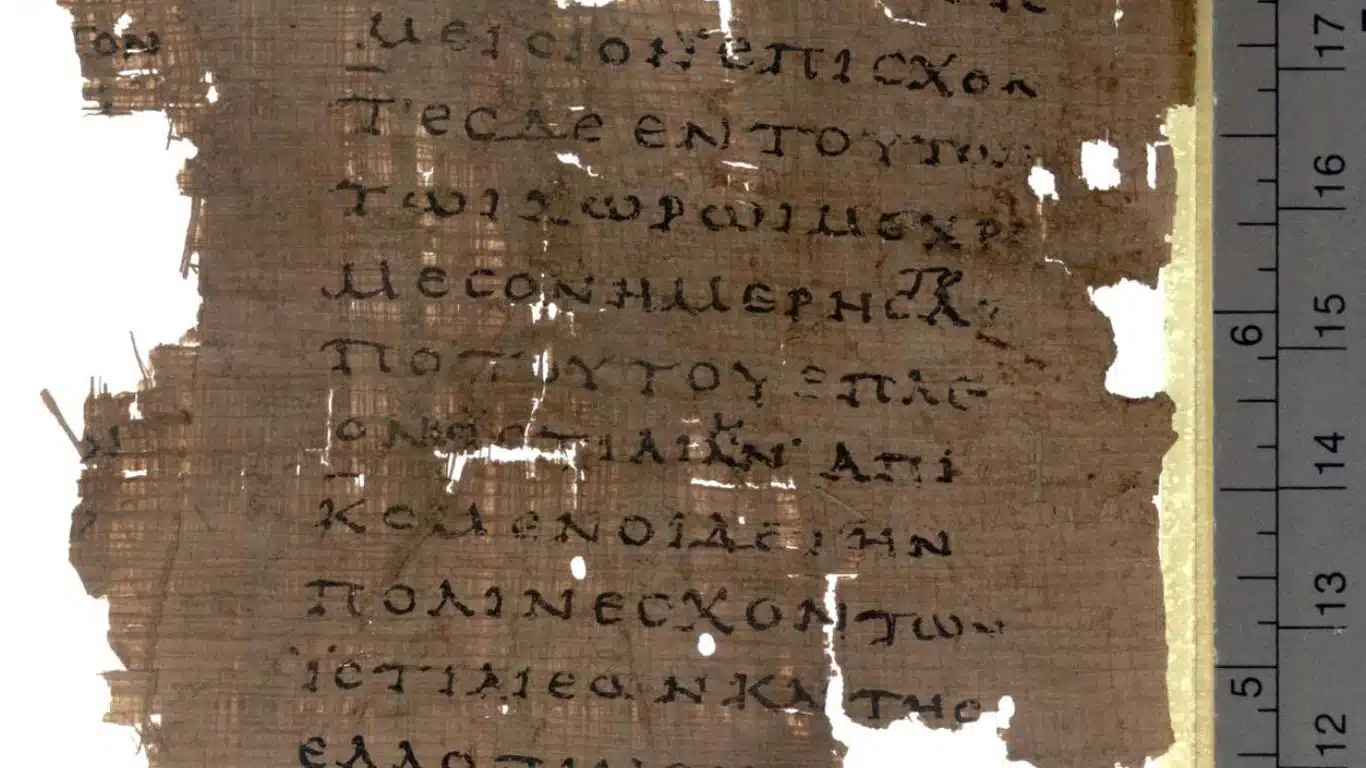 ΤΟΝ
ΜΕΙCΙΟΝ ΕΠΙCΧΟΝ
ΤΕCΔΕ ΕΝ ΤΟΥΤΩΙ
ΤΩΙΧΩΡΩΙΜΕΧΡ
ΤΟ
ΜΕCΟΝΗΜΕΡΗCΑ
ΠΟΤΟΥΤΟΥ ΕΠΛΕ
ΟΝ ΙCΤΙΑΙΑΝ ΑΠΙ
ΚΟΜΕΝΟΙΔΕΤΗΝ
ΠΟΛΙΝΕCΧΟΝΤΩΝ
ΪCΤΙΑΙΕΩΝΚΑ ΤΗC
ΕΛΛΟ
17
16
15
14
13
12
6
5